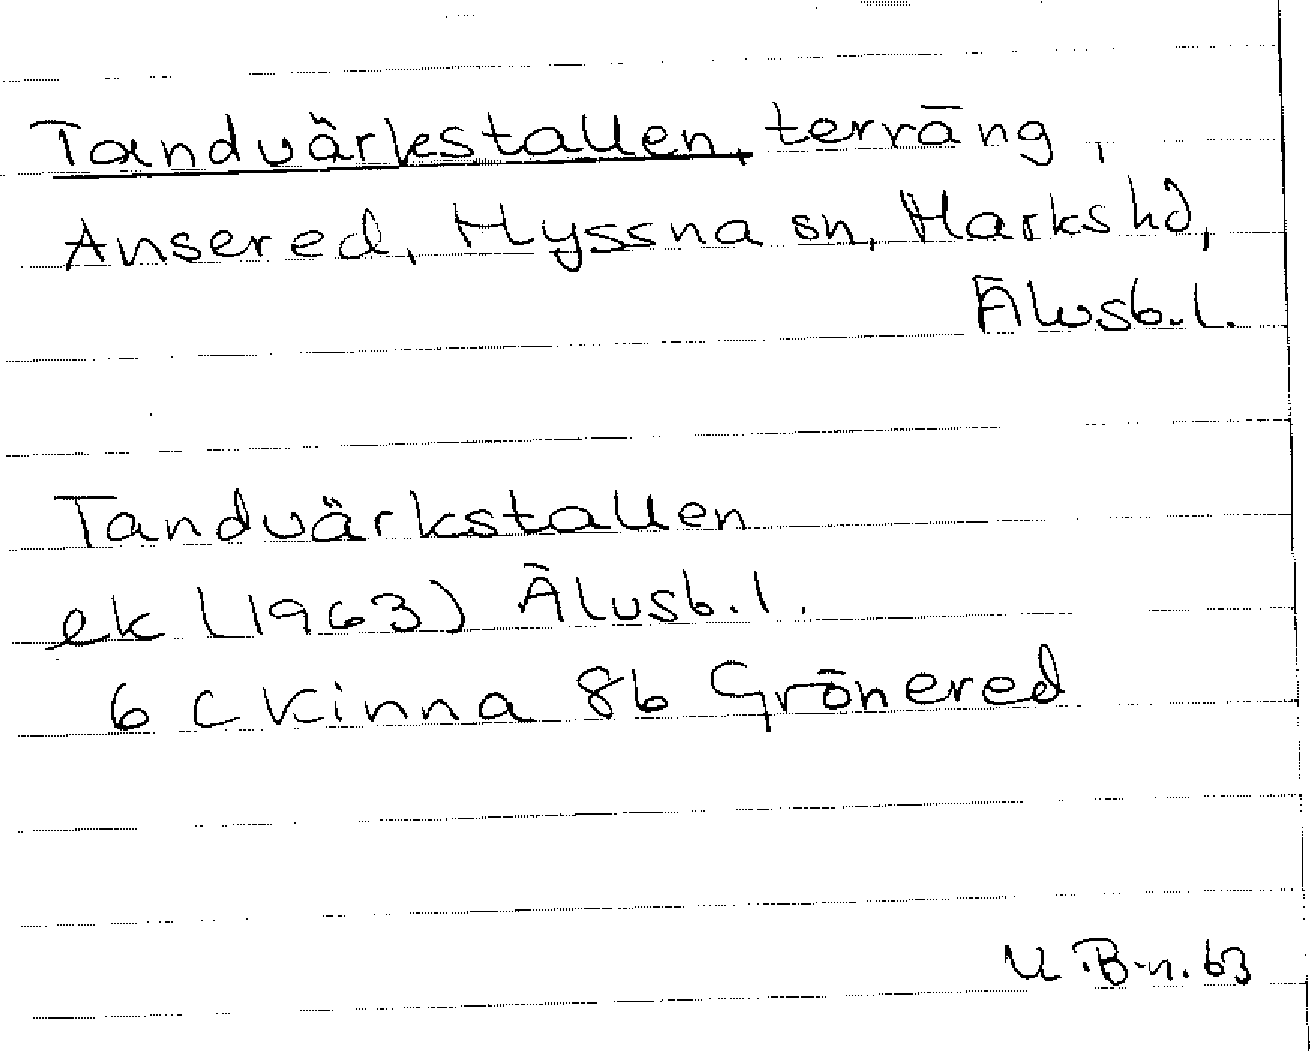 Tandvärkstallen, terräng,
Ansered, Hyssna sn, Marks hd,
Älvsb. l.
Tandvärkstallen
ek (1963) Älvsb. l.
6 C Kinna 8b Grönered
U B-n. 63